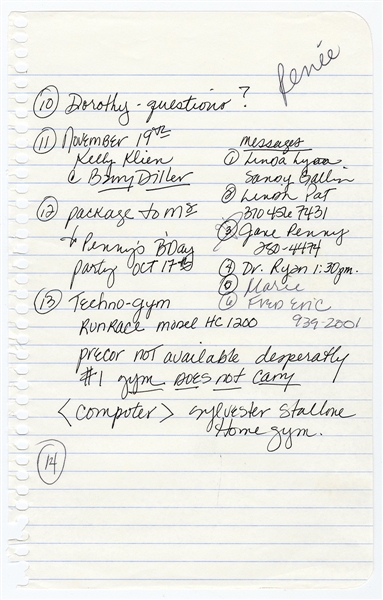 Renée
(10) Dorothy - questions ?
(11) November 19th
Kelly Klien
@ Barry Diller
(12) package to
+ Penny's B'Day
party Oct 17th
(13) Techno-gym
RunRace model HC 1200
precor not available desperatly
#1 gym Does not Carry
<computer> Sylvester Stallone
Home gym.
(14)
messages
(1) Linda
Sandy Gallin
(2) Pat
370 426 7431
(3) Penny
280-4474
(4) Dr. Ryan 1:30pm.
(5) Marie
(6) FREDERIC
939-2001